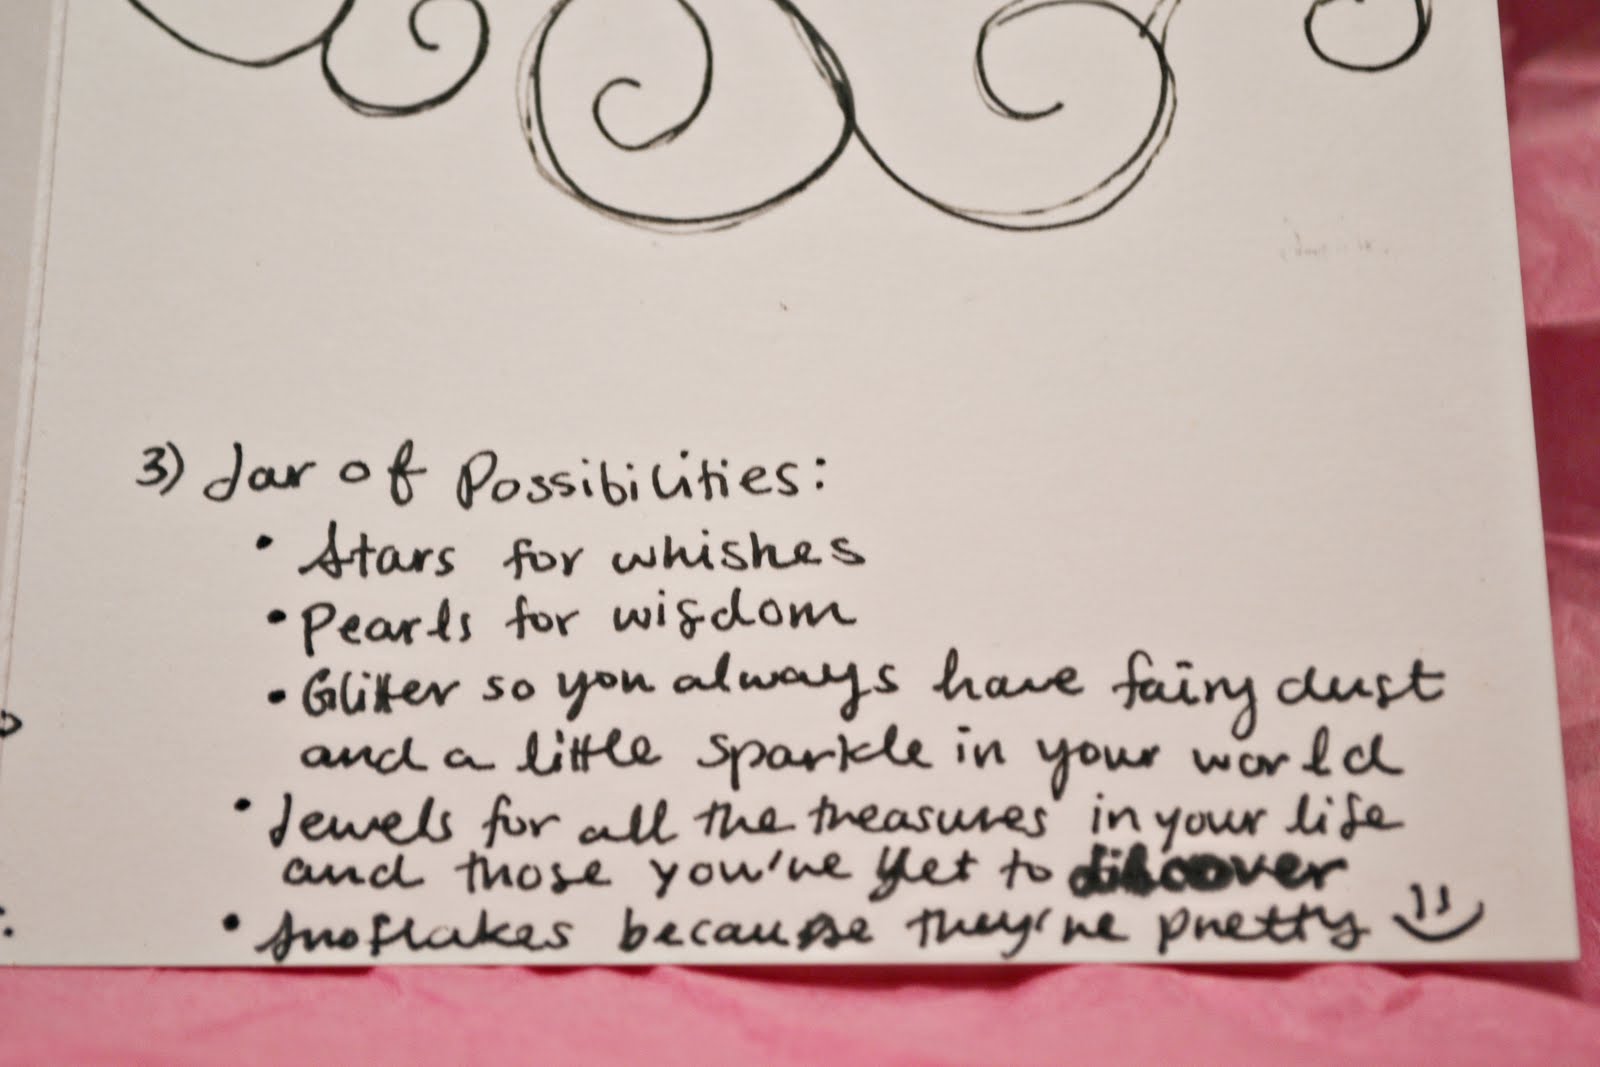 3) Jar of Possibilities:
• Stars for whishes
• Pearls for wisdom
• Glitter so you always have fairy dust
and a little sparkle in your world
• Jewels for all the treasures in your life
and those you've yet to discover
• Snoflakes because they're pretty